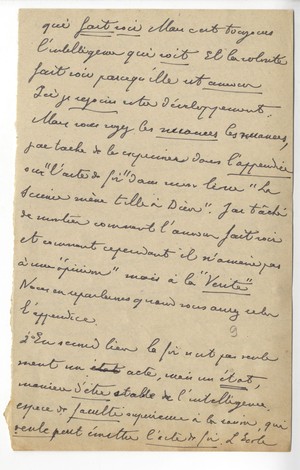 qui fait voir Mais c'est toujours
l'intelligence qui voit. Et la volonté
fait voir parce qu'elle est amour
Ici je rejoins votre développement.
Mais vous voyez les nuances les nuances,
j'ai tâché de les exprimer dans l'appendice
sur "l'acte de foi" dans mon livre "La
Science mène t'elle à Dieu". J'ai tâché
de montrer comment l'amour fait voir
et comment cependant il n'amène pas
à une "opinion" mais à la "Vérité"
Nous en reparlerons quand vous aurez relu
l'appendice.
9
2° En second lieu la foi n'est pas seule
ment un état acte, mais un état,
manière d'être stable de l'intelligence,
espèce de faculté supérieure à la raison, qui
seule peut émettre l'acte de foi. L'école